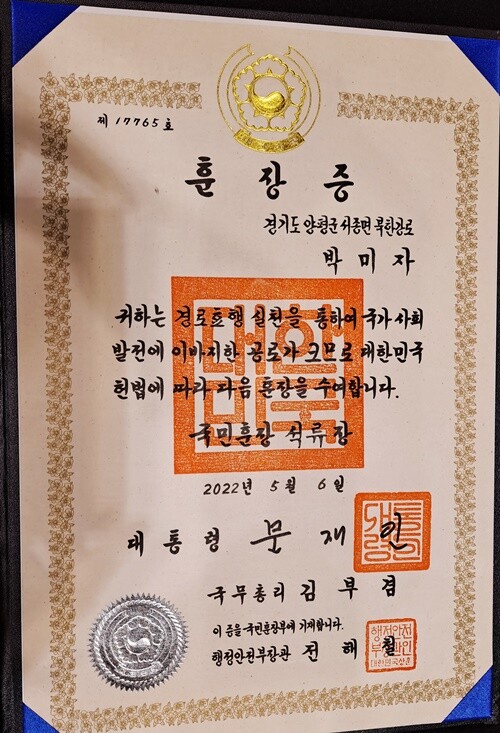 제 17765 호
훈장증
경기도 양평군 서종면 북한강로
박미자
귀하는 경로효행 실천을 통하여 국가 사회
발전에 이바지한 공로가 크므로 대한민국
헌법에 따라 다음 훈장을 수여합니다.
국민훈장 석류장
2022년 5월 6일
대통령 문재인
국무총리 김부겸
이 증을 국민훈장부에 기재합니다.
행정안전부장관 전해철